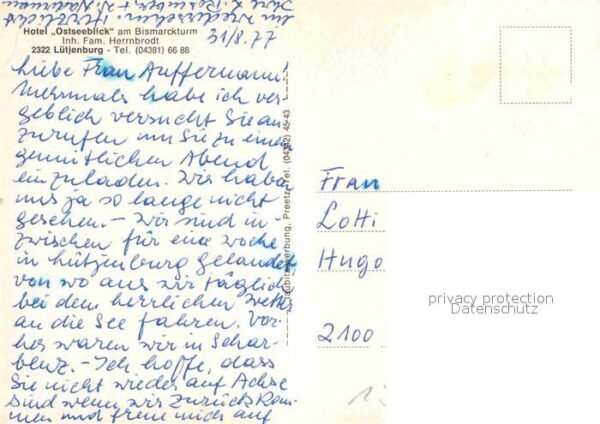 Hotel „Ostseeblick" am Bismarckturm
Inh. Fam. Herrnbrodt
2322 Lütjenburg - Tel. (04381) 66 88
31/8.77
Liebe Frau Auffermann!
Mehrmals habe ich ver-
geblich versucht Sie an-
zurufen um Sie zu einem
gemütlichen Abend
einzuladen. Wir haben
uns ja so lange nicht
gesehen. - Wir sind in-
zwischen für eine Woche
in Lützenburg gelandet,
von wo aus wir täglich
bei dem herrlichen Wetter
an die See fahren. Vor-
her waren wir in Schar-
beuz. - Ich hoffe, dass
Sie nicht wieder auf Achse
sind wenn wir zurückkom-
men und freue mich auf
ein Wiedersehen. Herzlichst
Ihre
Preetz, Tel. (04342) 45 43
Frau
Lotti
Hugo
2100
privacy protection
Datenschutz